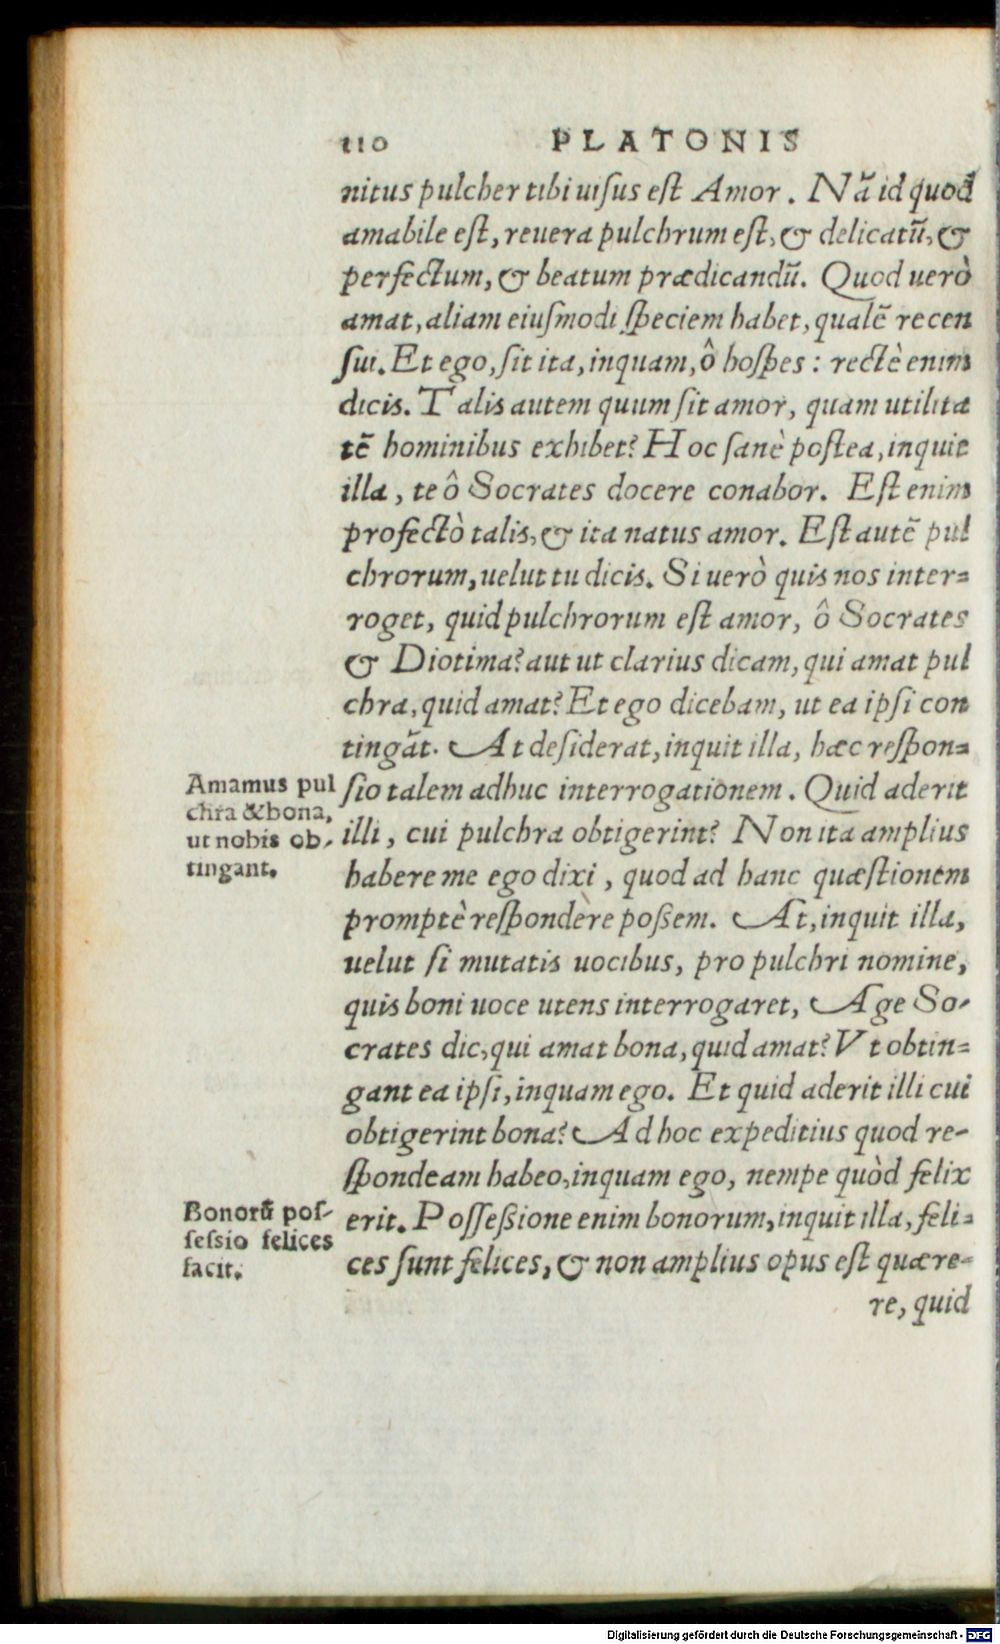 110 PLATONIS
nitus pulcher tibi uisus est Amor. Nã id quod
amabile est, reuera pulchrum est, & delicatũ, &
perfectum, & beatum prædicandũ. Quod uerò
amat, aliam eiusmodi speciem habet, qualẽ recen
sui. Et ego, sit ita, inquam, ô hospes: rectè enim
dicis. Talis autem quum sit amor, quam utilita
tẽ hominibus exhibet? Hoc sanè postea, inquit
illa, te ô Socrates docere conabor. Est enim
profectò talis, & ita natus amor. Est autẽ pul
chrorum, uelut tu dicis. Si uerò quis nos inter-
roget, quid pulchrorum est amor, ô Socrates
& Diotima? aut ut clarius dicam, qui amat pul
chra, quid amat? Et ego dicebam, ut ea ipsi con
tingãt. At desiderat, inquit illa, hæc respon-
Amamus pul
chra & bona,
ut nobis ob-
tingant.
sio talem adhuc interrogationem. Quid aderit
illi, cui pulchra obtigerint? Non ita amplius
habere me ego dixi, quod ad hanc quæstionem
promptè respondère possem. At, inquit illa,
uelut si mutatis uocibus, pro pulchri nomine,
quis boni uoce utens interrogaret, Age So-
crates dic, qui amat bona, quid amat? Vt obtin-
gant ea ipsi, inquam ego. Et quid aderit illi cui
obtigerint bona? Ad hoc expeditius quod re-
spondeam habeo, inquam ego, nempe quòd felix
Bonorũ pos-
sessio felices
facit.
erit. Possessione enim bonorum, inquit illa, feli-
ces sunt felices, & non amplius opus est quære-
re, quid
Digitalisierung gefördert durch die Deutsche Forschungsgemeinschaft - DFG